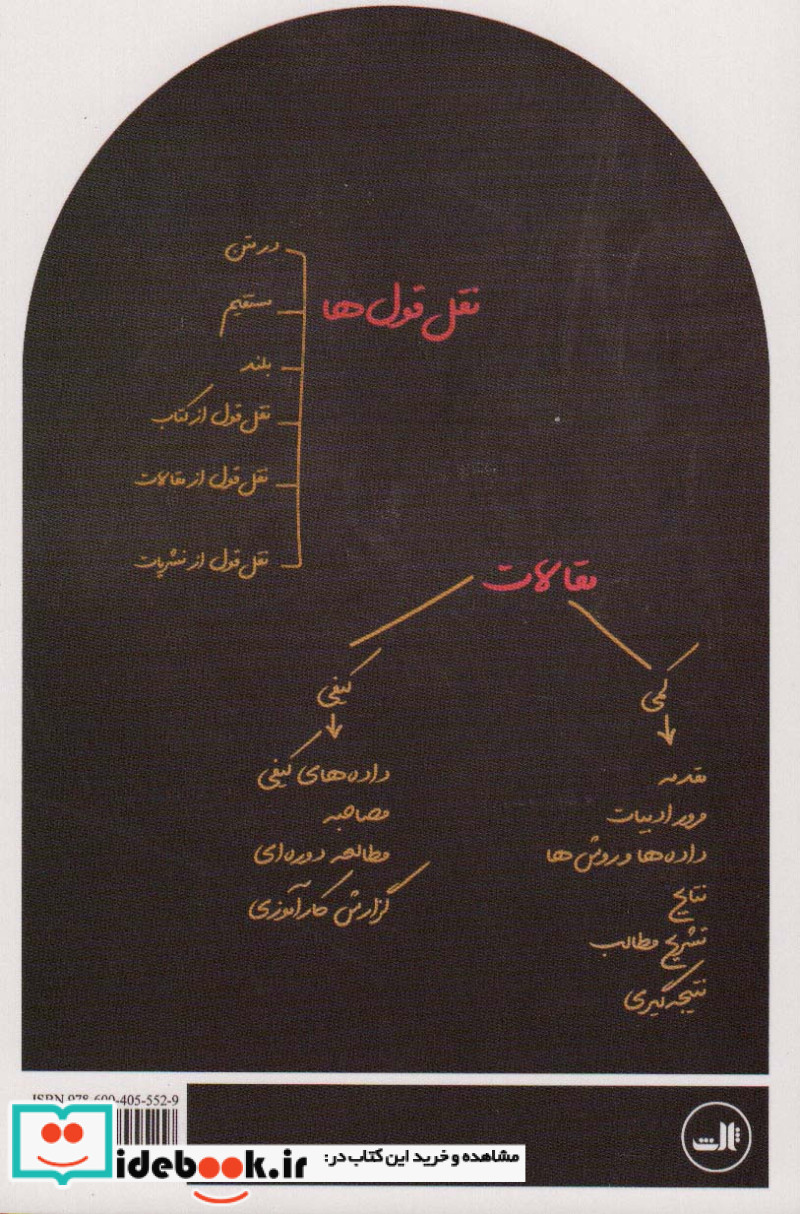 نقل قول ها
در متن
مستقیم
بلند
نقل قول از کتاب
نقل قول از مقالات
نقل قول از نشریات
مقالات
کمی
مقدمه
مرور ادبیات
داده ها و روش ها
نتایج
تشریح مطالب
نتیجه گیری
کیفی
داده های کیفی
مصاحبه
مطالعه دوره ای
گزارش کارآموزی
ISBN 978-600-405-552-9
ثالث
مشاهده و خرید این کتاب در:
idebook.ir